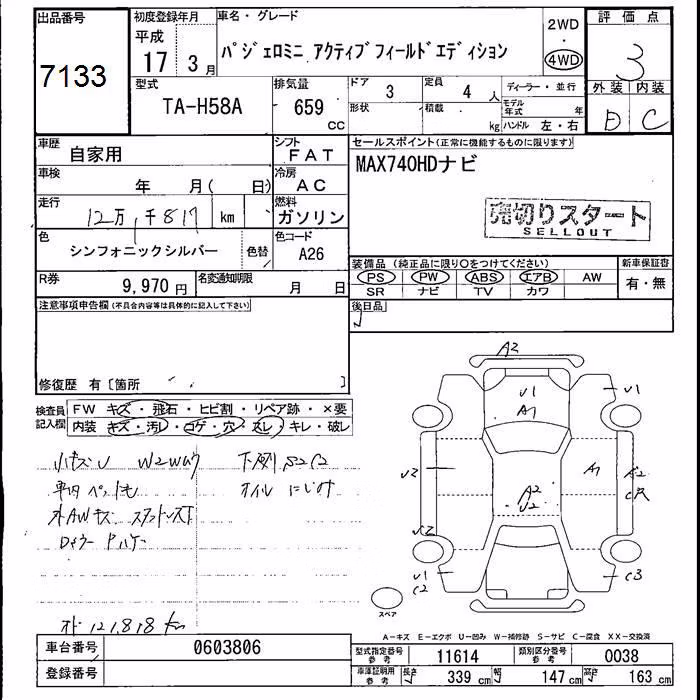 出品番号
7133
初度登録年月
平成
17 3月
車名・グレード
パジェロミニ アクティブフィールドエディション
2WD
・
4WD
評価点
3
外装 内装
D C
型式
TA-H58A
排気量
659 CC
ドア 3
形状
定員 4 人
積載 kg
ディーラー・並行
モデル年式 年
ハンドル 左・右
車歴 自家用
シフト FAT
車検 年 月( 日)
冷房 AC
走行 12万 千817 km
燃料 ガソリン
色 シンフォニックシルバー 色替
色コード A26
R券 9,970 円
名変通知期限 月 日
セールスポイント(正常に機能するものに限ります)
MAX740HDナビ
売切りスタート
SELLOUT
装備品(純正品に限り○をつけてください)
PS PW ABS エアB AW
SR ナビ TV カワ
新車保証書
有・無
後日品
注意事項申告欄(不具合内容等は具体的に記入して下さい)
修復歴 有〔箇所 〕
検査員記入欄
FW キズ・飛石・ヒビ割・リペア跡・×要
内装 キズ・汚レ・コゲ・穴・スレ・キレ・破レ
小キズU W2W有 下廻りS2C2
オイルにじみ
A2
U1
A1
U1
U2
A1
A2
A2
U2
U2
U1
C2
C3
スペア
121,818 km
A-キズ E-エクボ U-凹み W-補修跡 S-サビ C-腐食 XX-交換済
車台番号 0603806
登録番号
型式指定番号 参考 11614
類別区分番号 参考 0038
車庫証明用 参考 長さ 339 cm 幅 147 cm 高さ 163 cm